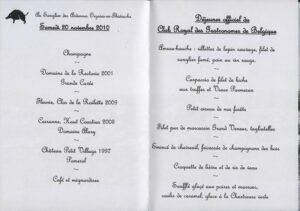 Au Sanglier des Ardennes Oignies-en-Thiérache
Samedi 20 novembre 2010
Champagne
~
Domaine de la Rectorie 2001
Grande Cuvée
~
Fleurie, Clos de la Roilette 2009
~
Cairanne, Haut Coustias 2008
Domaine Alary
~
Château Petit Village 1997
Pomerol
~
Café et mignardises
Déjeuner officiel du
Club Royal des Gastronomes de Belgique
Amuse-bouche : rillettes de lapin sauvage, filet de
sanglier fumé, pain au vin rouge.
~
Carpaccio de filet de biche
aux truffes et Vieux Parmesan
~
Petit oiseau de nos forêts
~
Filet pur de marcassin Grand Veneur, tagliatelles
~
Emincé de chevreuil, fricassée de champignons des bois
~
Croquette de lièvre et de ris de veau
~
Soufflé glacé aux poires et marrons,
coulis de caramel, glace à la Chartreuse verte